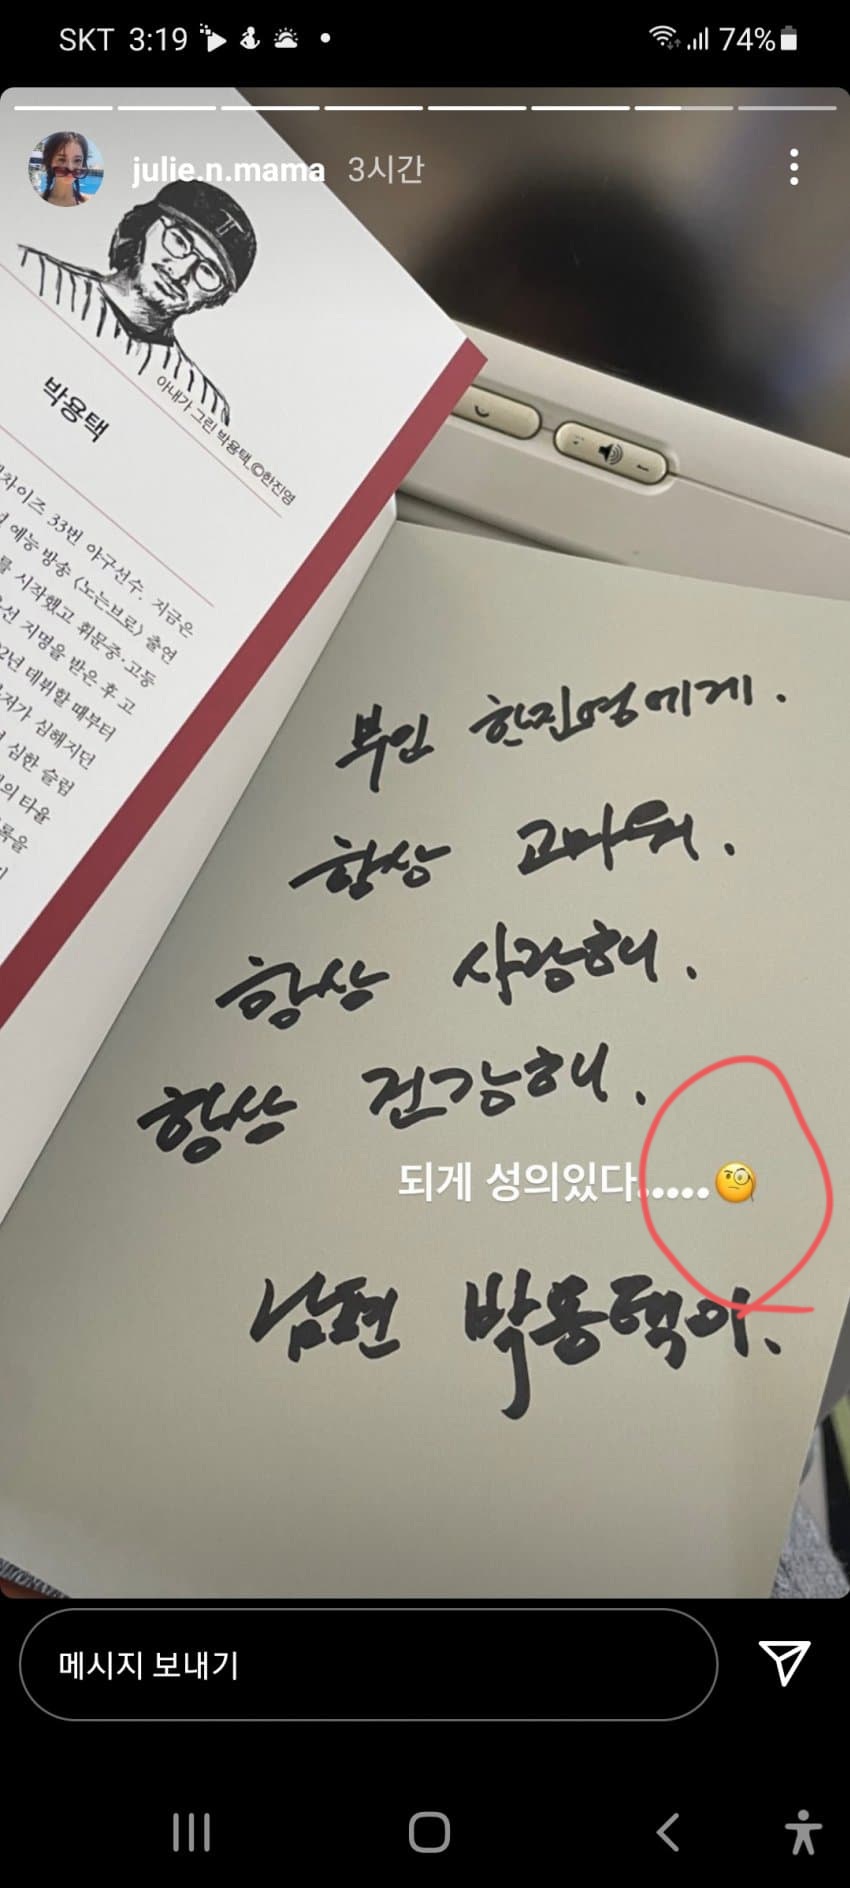 SKT 3:19
74%
julie.n.mama 3시간
T
아내가 그린 박용택 ©한진영
박용택
33번 야구선수. 지금은
예능 방송 〈노는브로〉 출연
를 시작했고 휘문중·고등
지명을 받은 후 고
2년 데뷔할 때부터
가 심해지던
심한 슬럼
의 타율
록을
부인 한진영에게.
항상 고마워.
항상 사랑해.
항상 건강해.
되게 성의있다......🧐
남편 박용택이.
메시지 보내기